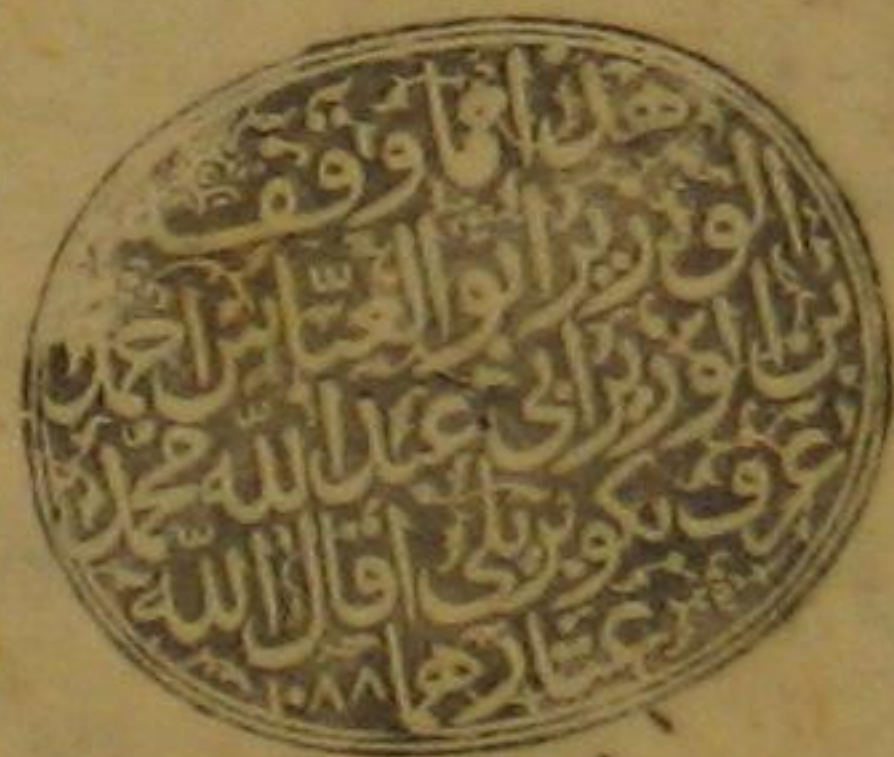 هذا مما وقف
الوزير ابو العباس احمد
بن الوزير ابي عبد الله محمد
عرف بكوبريلي اقال الله
عثارهما
١٠٨٨